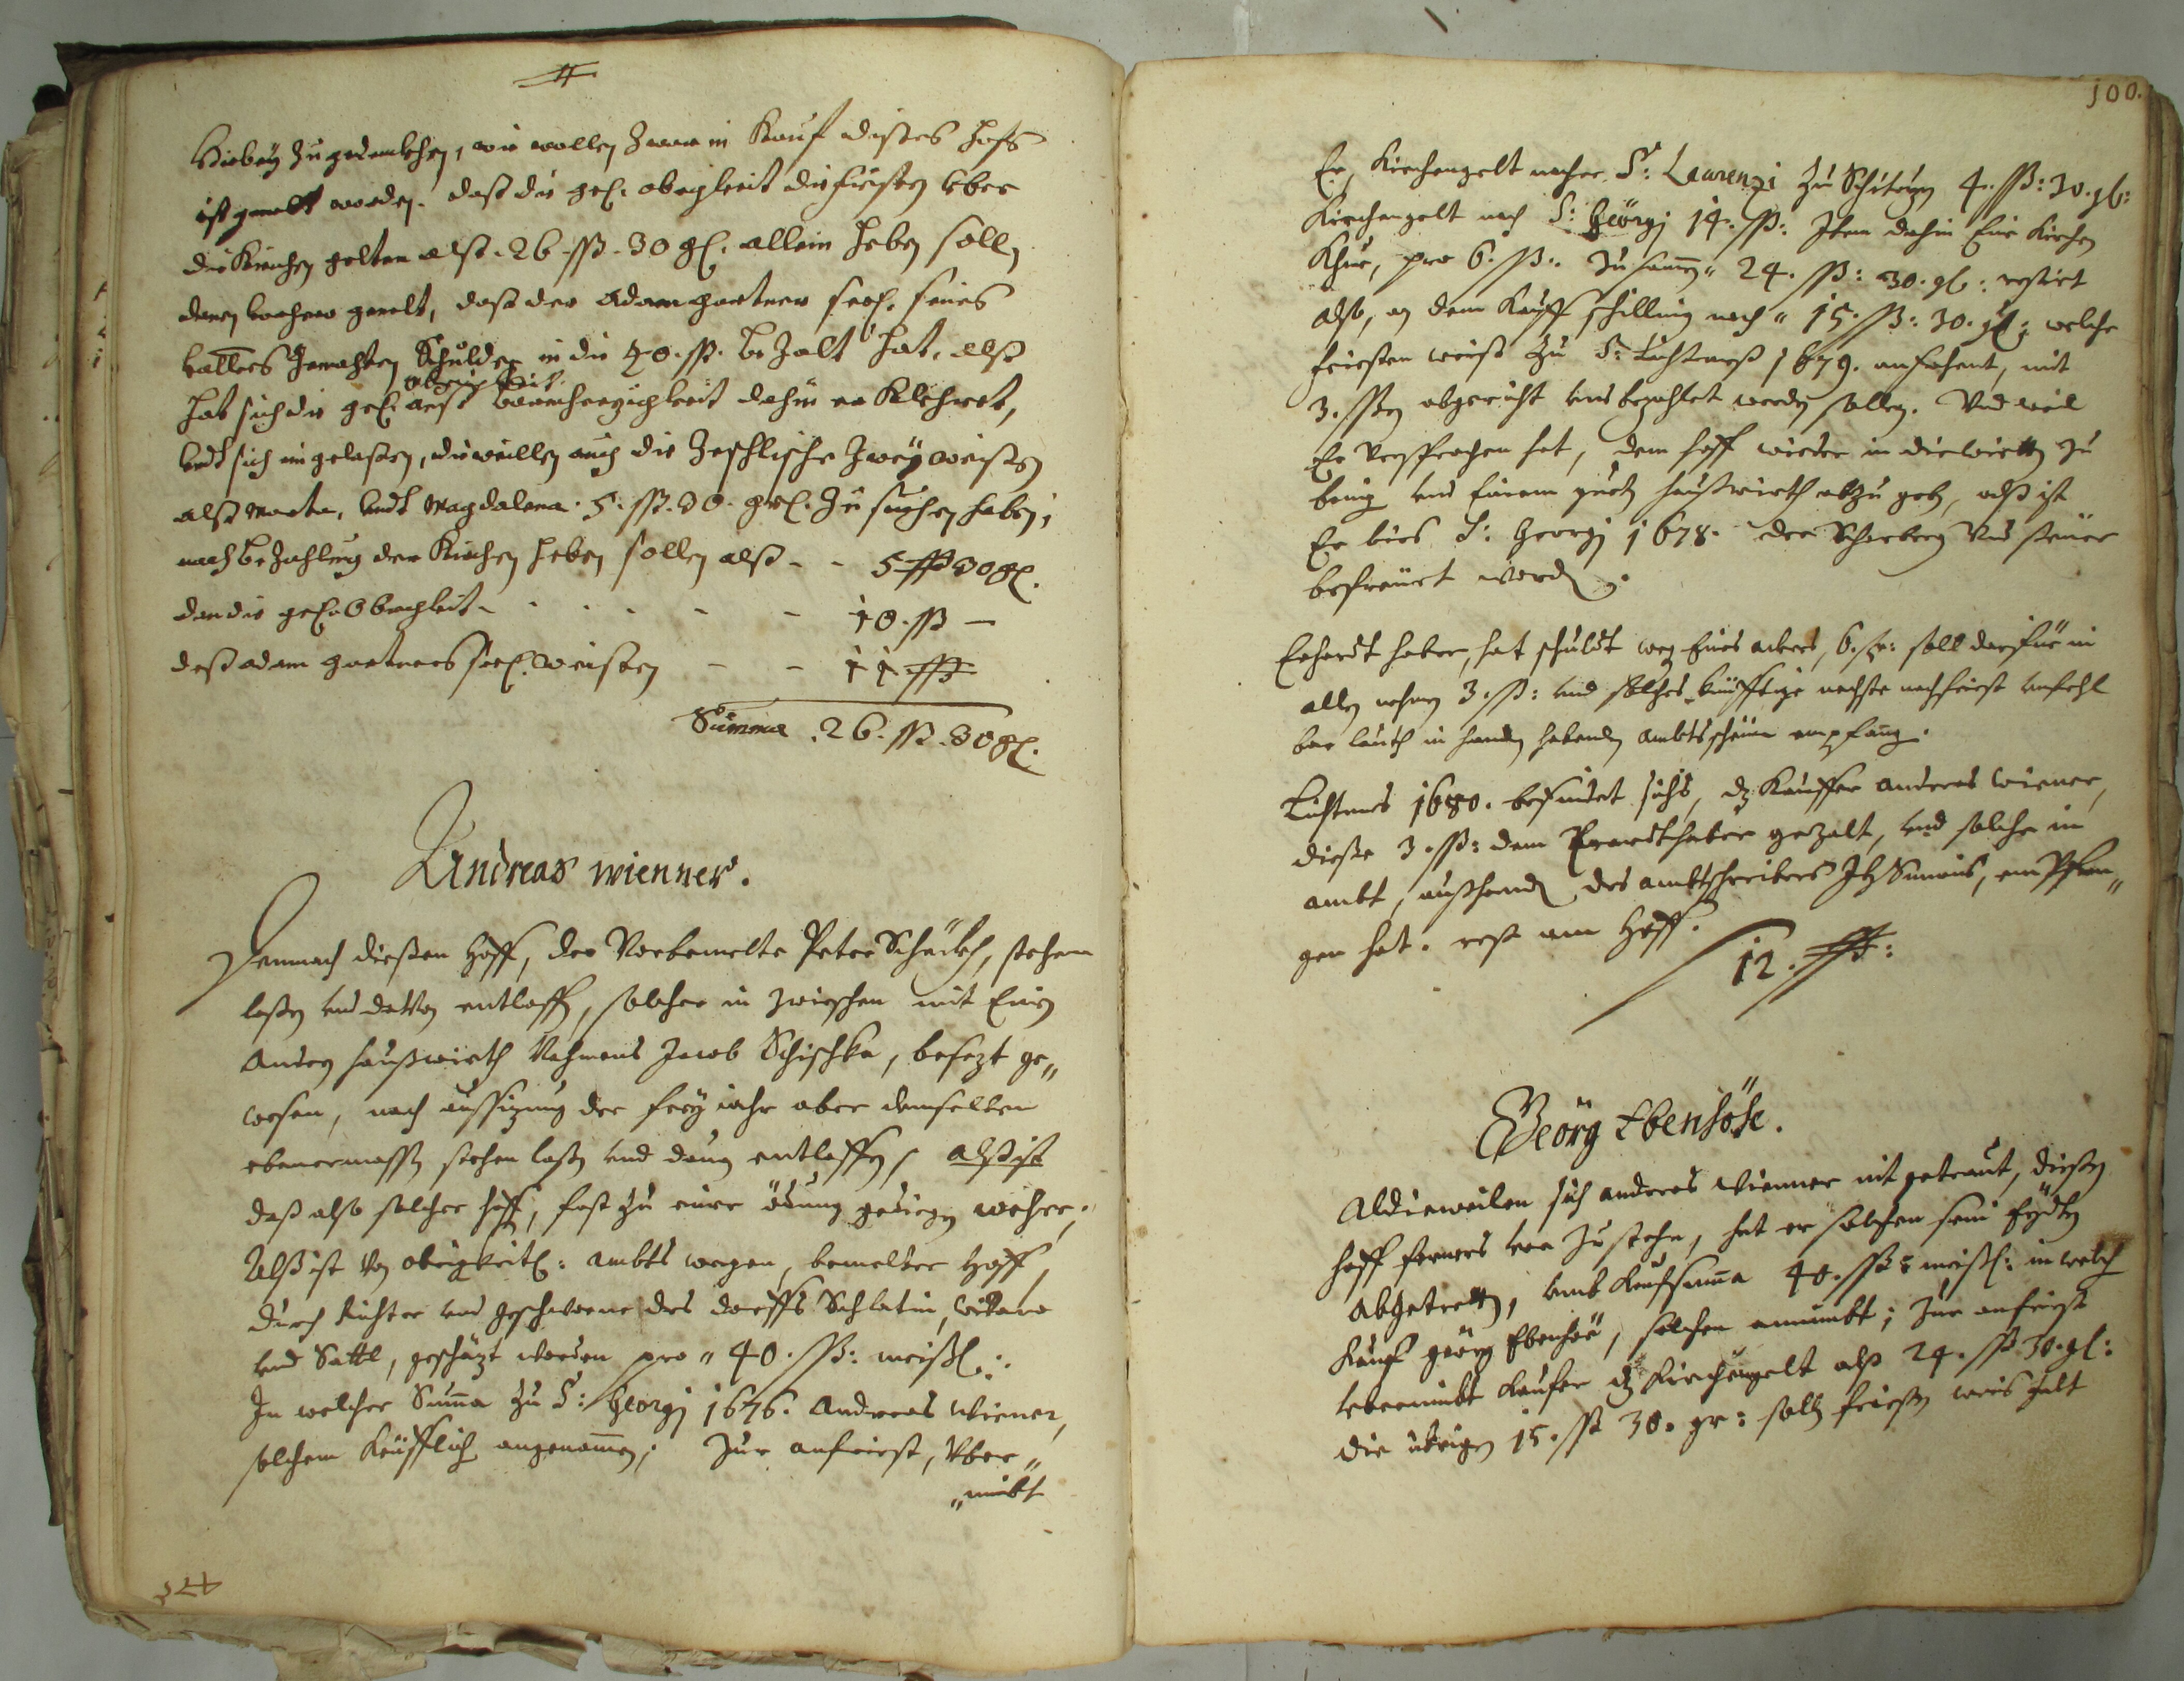 #
Hiebey zu gedenkhen, wie wollen Zwar in Kauf dißes hofs
ist gemelt worden. daß die gl: obrigkeit die fristen Uber
die Kirchen gelter alß. 26 ßß. 30 gl. allein heben solle
denen vorhero gemelt, daß der Adam gartner seel. seines
vatters gemachten Schulden in die 40. ßß. bezalt hat, alß
obrigkeit
hat sich die gl. auß barmherzigkeit dahin erklehret,
undt sich eingelaßen, dieweillen auch die Zeschlische Zwey weißen
alß Marta, undt Magdalena. 5. ßß. 30. gl. Zu suchen haben,
nach bezahlung der Kirchen heben sollen alß - - 5 ßß 30 gl.
dan die gl. Obrigkeit - - - - - 10. ßß —
deß adam gartners seel. weißen - - 11 ßß
Summa. 26. ßß. 30 gl.
Andreas Wienner.
Demnach dießen Hoff, der Vorbemelte Peter Schückh, stehen
laßen und davon entloffen, solcher in zwischen mit Einen
Andern haußwirth Nahmens Jacob Schischka, besezt ge„
wesen, nach außsizung der frey iahr aber denselben
ebenermassen stehen laßen und davon entloffen, alß ist
daß also solcher hoff, fast zu einer ödung gediegen wehre,
Alß ist von obrigkeitl: ambts wegen, bemelter Hoff,
durch Richter und geschworne des dorffs Schlatin,
und Sattl, geschäzt worden pro „ 40. ßß: meißl:.
In welcher Summa zu S: Georgi 1676. Andreas Wiener,
solchem Keüfflich angenommen; Zur anfrist, Uber„
„nimbt
100.
Er, Kirchengelt nacher S: Laurenzi zu 4. ßß: 30. gl:
Kirchengelt nach S: Geörgi 14. ßß: Item dahin Eine Kirchen
Khue, pro 6. ß:. Zusammen „ 24. ßß: 30. gl: restirt
also, an dem Kauff schilling noch „ 15. ßß: 30. gl: welche
fristen weiß zu S: Liechtmeß 1679. anfahent, mit
3. ßßen abgericht und bezahlet werden sollen. Und weil
Er Versprochen hat, dem hoff wieder in die zu
bring und Einem guten haußwirth abzugeben, alß ist
Er bies S: Georgi 1678. der Scharberg Und steüer
befreüet worden.
Erhardt haber, hat schuldt weg Eines ackers, 6. ß: soll darfür in
allen nehmen 3. ß: und solches künfftige nechste nachfrist unfehl
bar lauth in handen habenden ambtsschein empfang.
Lichtmes 1680. befindet sichs, dz Kauffer Andreas Wiener,
dieße 3. ßß: dem Erardt haber gezalt, und solche im
ambt, auß handen des ambtschreibers empfan„
gen hat. rest am Hoff.
12. ßß:
Geörg Ebenhöhe.
Aldieweilen sich andreas Wienner nit getraut, dießen
hoff ferners vor zu stehn, hat er solchen sein Eydten
abgetretten, umb Kaufsumma 40. ßß: meißl: in welch
Kauf geörg Ebenhöe, solchen annimbt; Zur anfrist
ubernimbt Kaufer dz Kirchengelt alß 24. ßß 30. gl:
die übrigen 15. ßß 30. gr: solln fristen weis zalt